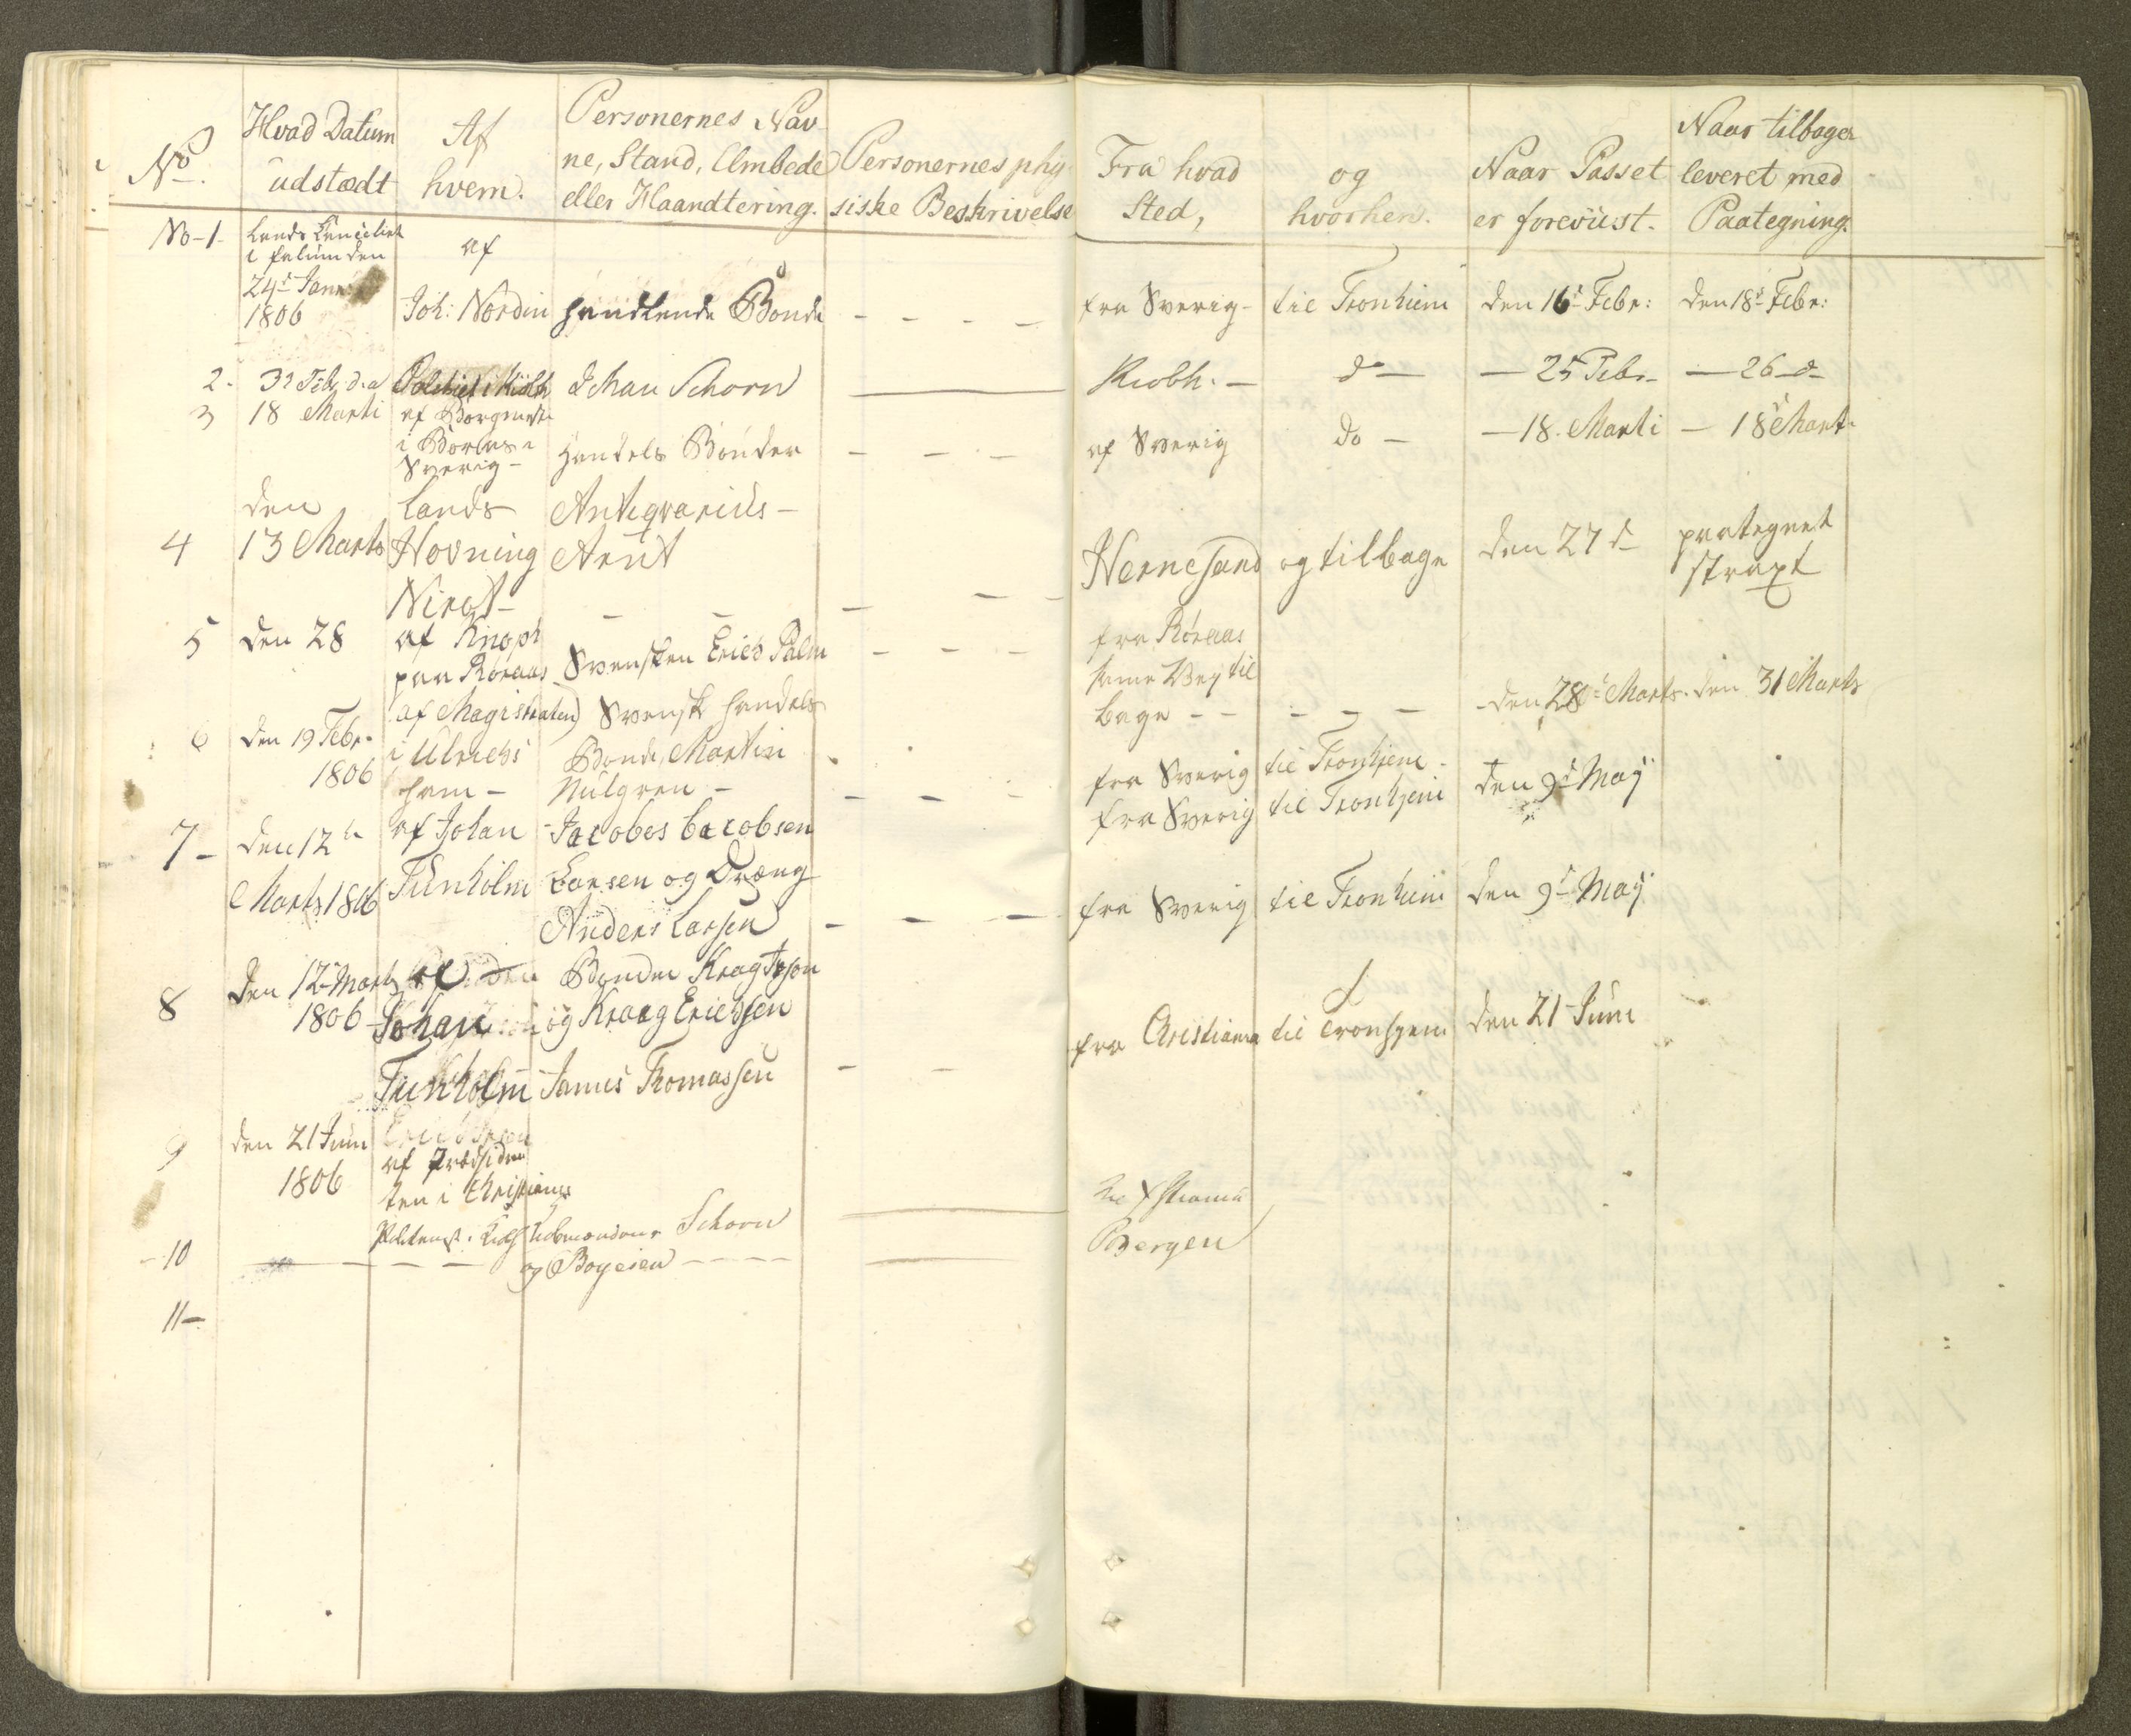 No.
Hvad Datum
udstædt
Af
hvem.
Personernes Nav-
ne, Stand, Embede
eller Haandtering.
Personernes phy-
siske Beskrivelse
Fra hvad
Sted,
og
hvorhen.
Naar Passet
er foreviist.
Naar tilbage
leveret med
Paategning.
No 1
Lands Cancelliet
i Falun den
24d Janr:
1806
af
Joh: Nordin
handlende Bonde
fra Sverig
til Tronhiem
den 16d Febr:
den 18d Febr:
2
Politiet i Kiøbh
Johan Schorn
Kiøbh.
do
25 Febr
26 do
3
18 Marti
af Borgmest
i Boraas i
Sverig
Handels Bønder
af Sverig
do
18. Marti
18d Mart.
4
den
13 Marts
Lands
Høvning
Antiqvarius
Arnt
Hernesand
og tilbage
den 27d
paategnet
straxt
5
den 28
af
paa Røraas
Svensken Erich Palm
fra Røraas
same Vey til
bage
den 28d Marts
den 31 Marts
6
den 19 Febr.
1806
af Magistraten
i Ulrichs
ham
Svensk Handels
Bonde, Martin
Nulgren
fra Sverig
til Tronhjem
fra Sverig
til Tronhjem
den 9d Maij
7
den 12te
Marts 1806
af Johan
Tunholm
Jacobes Jacobsen
Larsen og Dræng
Anders Larsen
fra Sverig
til Tronhiem
den 9d Maij
8
den 12 Marts
1806
af den
Johan
Tunholm
Bonden
og Kraag Erichsen
Janus Thomassen
fra Christiania
til Tronhjem
den 21 Juni
9
den 21 Juni
1806
af Præsiden
ten i Christiania
10
Kiøbmændene Schorn
og Boyesen
Bergen
11